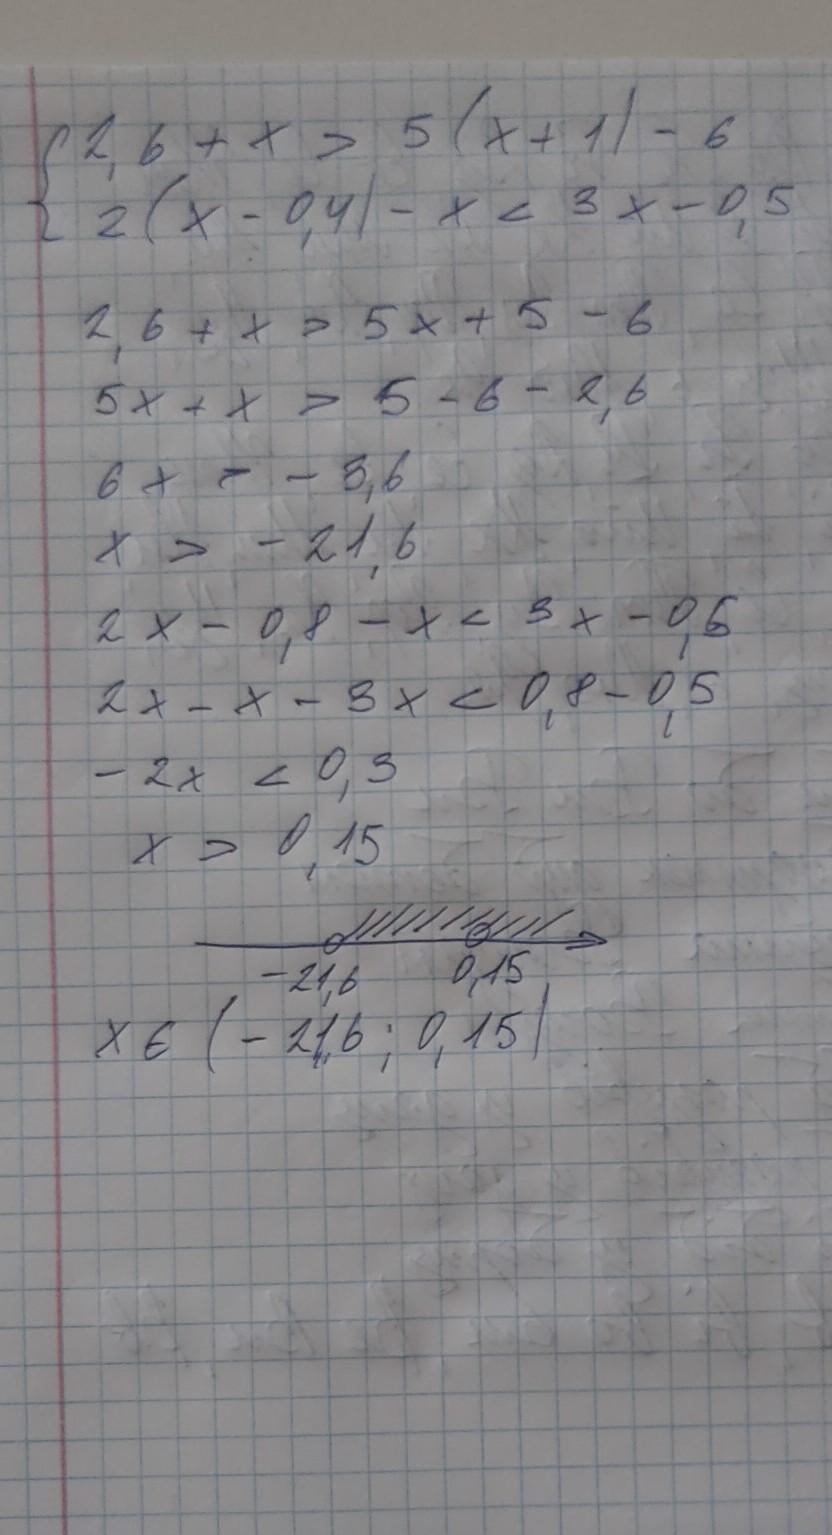 { 2,6 + x > 5(x+1) - 6
2(x - 0,4) - x < 3x - 0,5
2,6 + x > 5x + 5 - 6
5x + x > 5 - 6 - 2,6
6x > - 3,6
x > - 21,6
2x - 0,8 - x < 3x - 0,5
2x - x - 3x < 0,8 - 0,5
- 2x < 0,3
x > 0,15
-21,6 0,15
x ∈ (- 21,6 ; 0,15)